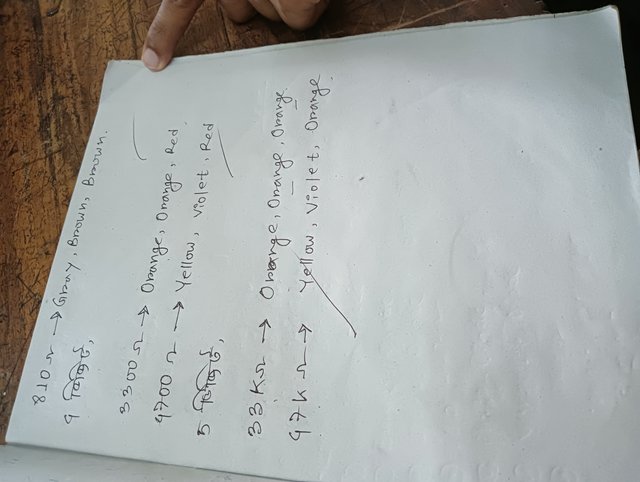 810 Ω → Gray, Brown, Brown.
3300 Ω → Orange, Orange, Red.
4700 Ω → Yellow, violet, Red
33 K Ω → Orange, Orange, Orange.
47 K Ω → Yellow, Violet, Orange.